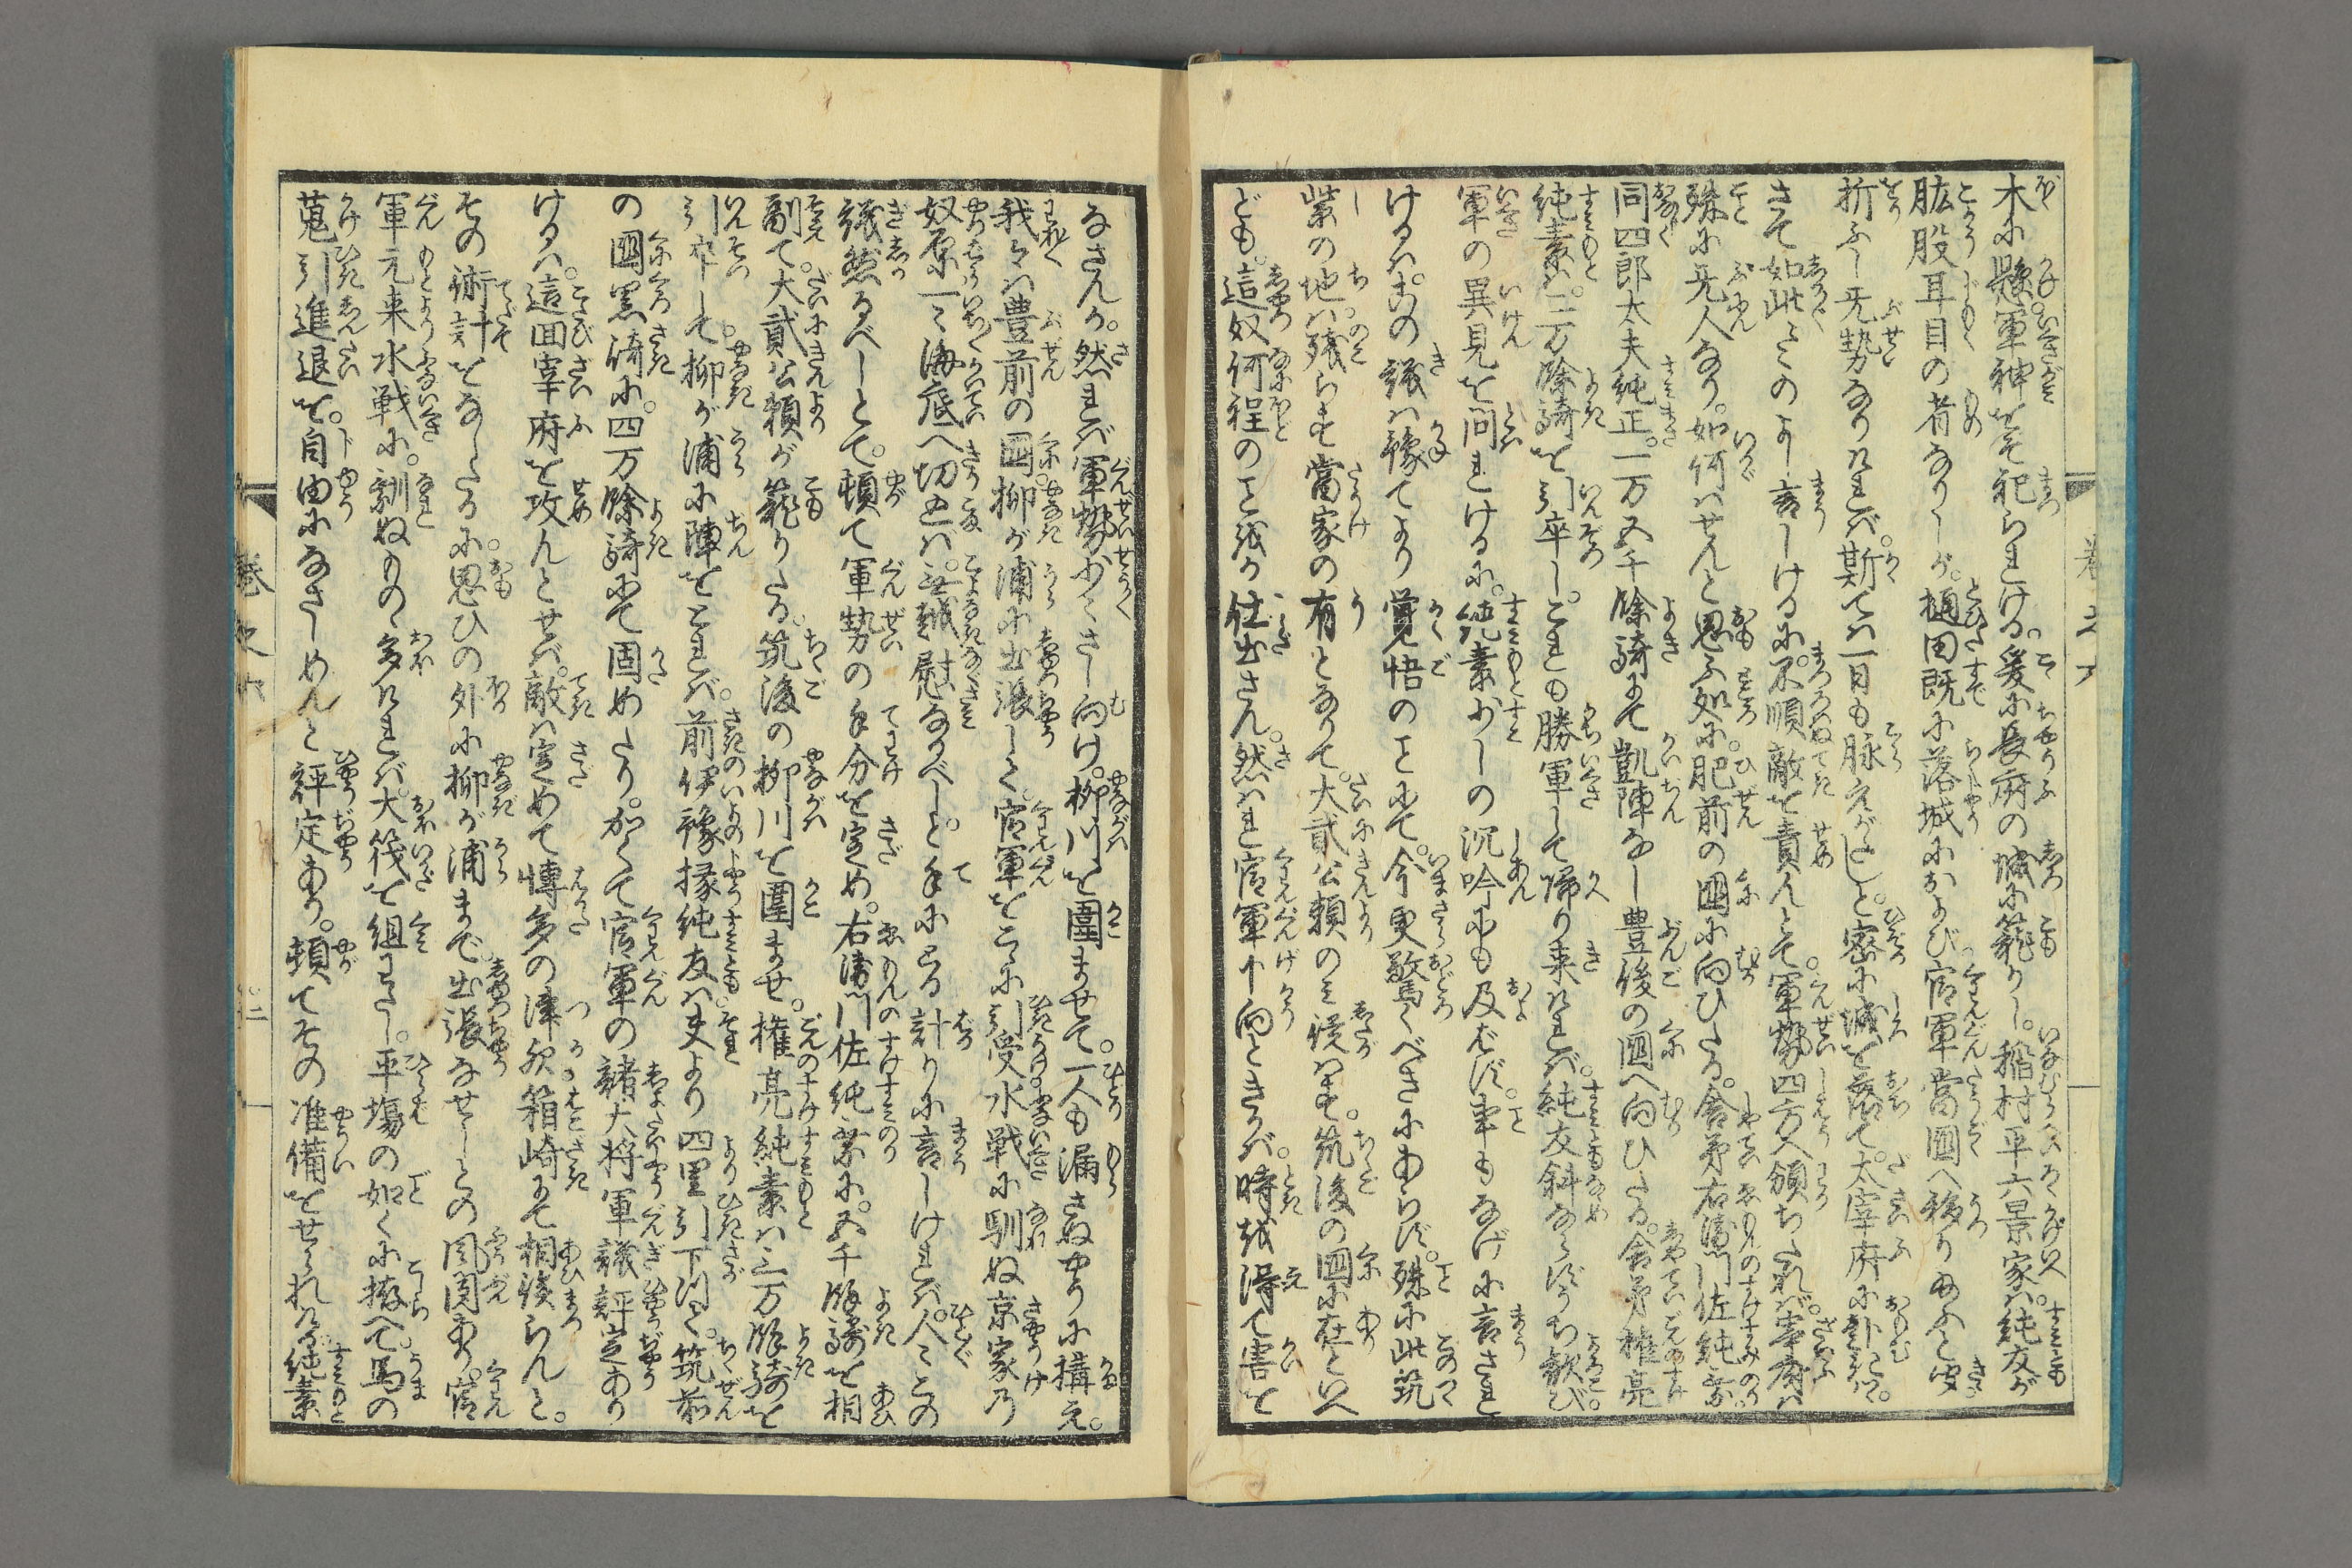 木に懸。軍神をぞ祀られける。爰に長府の城に篭りし。稲村平六景家ハ。純友が
肱股耳目の者なりしが。樋田既に落城におよび官軍當国へ移り給ふと聞
折ふし无勢なりけれバ。斯てハ一日も脉えがたしと。密に城を落て。太宰府に赴きつゝ。
さて如此々々のよし言しけるに。不順敵を責んとて。軍勢四方へ頒ちたれバ。宰府ハ
殊に无人なり。如何ハせんと思ふ処に。肥前の国に向ひたる。舎弟右衛門佐純業。
同四郎太夫純正。一万五千餘騎にて凱陣なし豊後の国へ向ひたる。舎弟権亮
純素ハ。二万餘騎を引卒し。これも勝軍して帰り来けれバ。純友斜ならずうち歓び。
軍の異見を問れけるに。純素少しの沉吟にも及ばず。事もなげに言され
けるハ。この議ハ豫てより覚悟のことにて。今更驚くべきにあらず。殊に此筑
紫の地ハ。残らず當家の有となりて。大貳公頼のミ後ハず。筑後の国に在といへ
ども。這奴何程のことをか仕出さん。然ハれ官軍下向ときかバ。時を得て害を
なさんか。然れバ軍勢少々さし向け。柳川を圍ませて。一人も漏さぬやうに構え。
我々ハ豊前の国柳が浦に出張して。官軍をこゝに引受水戦に馴ぬ京家乃
奴原一々海底へ切込バ。无越慰なるべしと。手にとる計りに言しけれバ。人々この
議然るべしとて。頓て軍勢の手分を定め。右衛門佐純業に。五千餘騎を相
副て。大貳公頼が篭りたる。筑後の柳川を圍ませ。権亮純素ハ三万餘騎を
引卆して。柳が浦に陣をとれバ。前伊豫掾純友ハ夫より四里引下りて。筑前
の国黒﨑に。四万餘騎にて固めたり。かくて官軍の諸大将軍議評定あり
けるハ。這回宰府を攻んとせバ。敵ハ定めて博多の津及箱崎にて相後らんと。
その術計をなしたるに。思ひの外に柳が浦まで。出張なせしとの風聞あり。官
軍元来水戦に。馴ぬもの多けれバ。大筏を組ミわたし。平塲の如くに拵へて。馬の
蒐引進退を。自由になさしめんと評定あり。頓てその准備をせられけるが。純素
巻之六